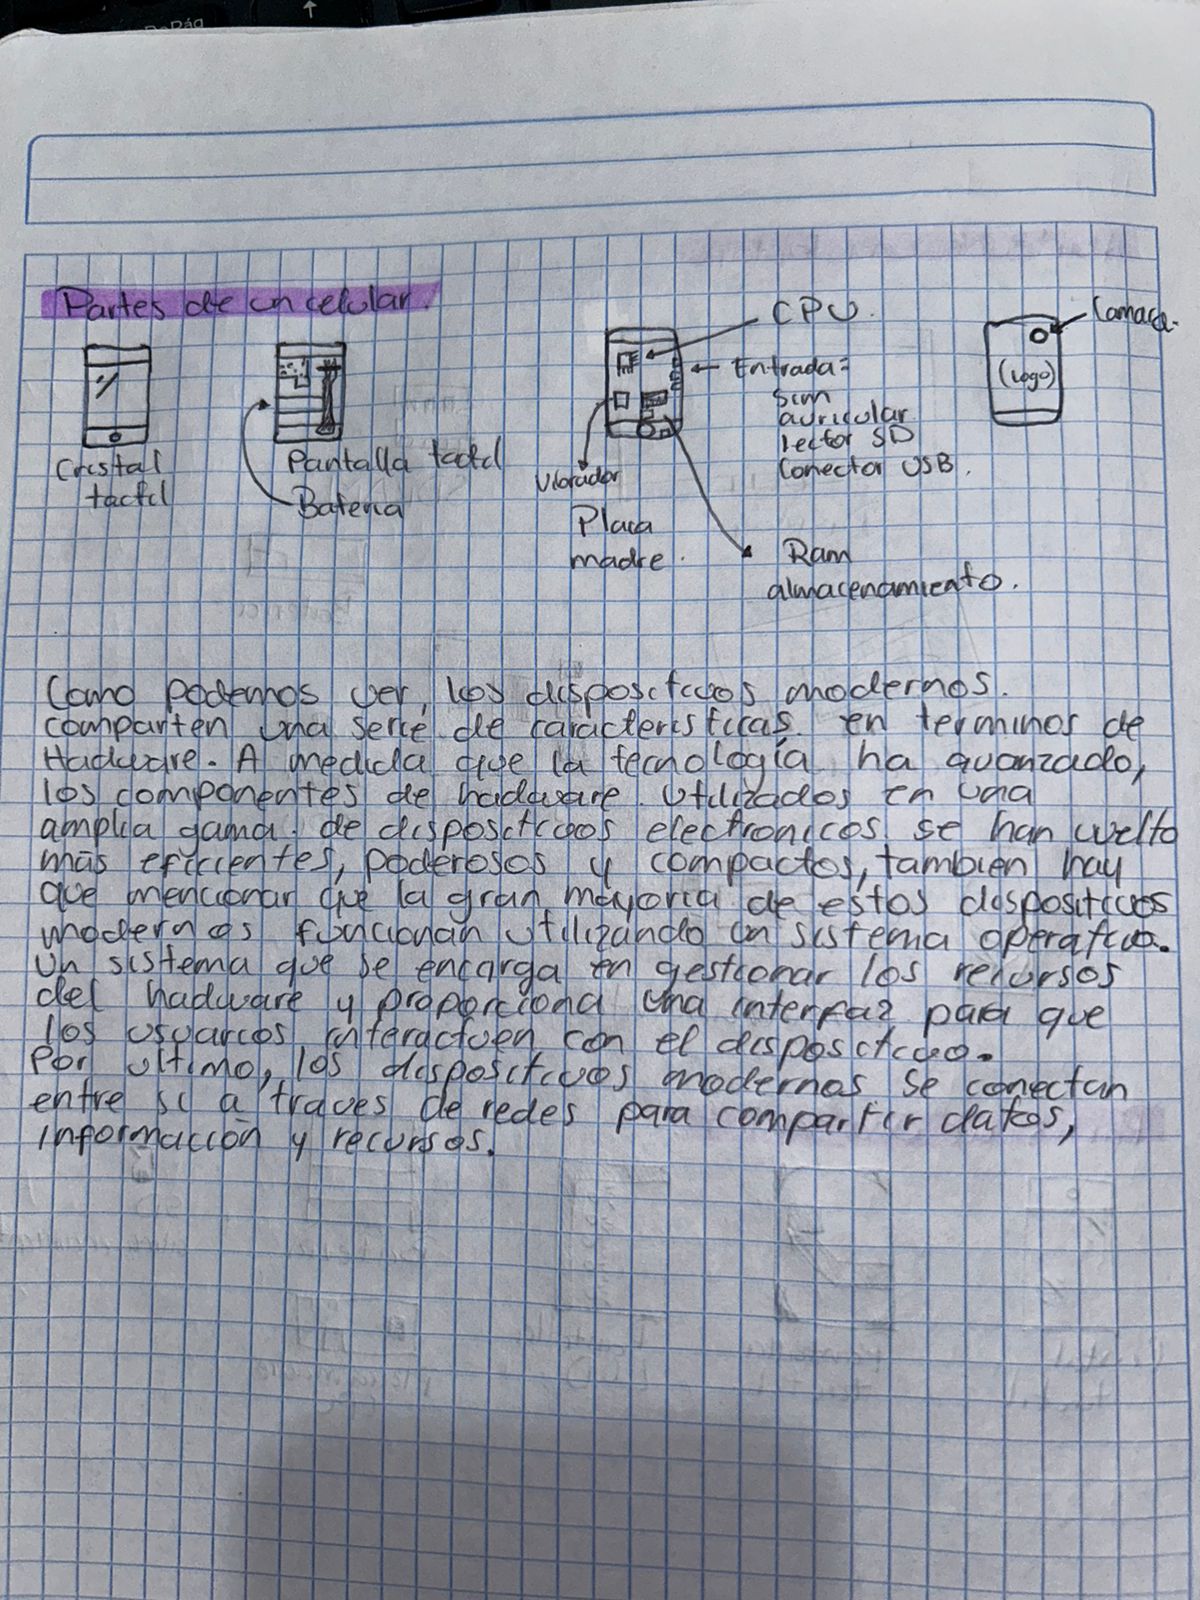 RePág
↑
Partes de un celular.
CPU.
Camara.
Entrada:
(Logo)
Sim
auricular
lector SD
Conector USB.
Cristal
tactil
Pantalla tactil
Bateria
Vibrador
Placa
madre.
Ram
almacenamiento.
Como podemos ver, los dispositivos modernos.
comparten una serie de caracteristicas en terminos de
Hadware. A medida que la tecnología ha avanzado,
los componentes de hadware utilizados en una
amplia gama de dispositivos electronicos se han vuelto
más eficientes, poderosos y compactos, tambien hay
que mencionar que la gran mayoria de estos dispositivos
modernos funcionan utilizando un sistema operativo.
Un sistema que se encarga en gestionar los recursos
del hadware y proporciona una interfaz para que
los usuarios interactuen con el dispositivo.
Por ultimo, los dispositivos modernos se conectan
entre si a traves de redes para compartir datos,
información y recursos.